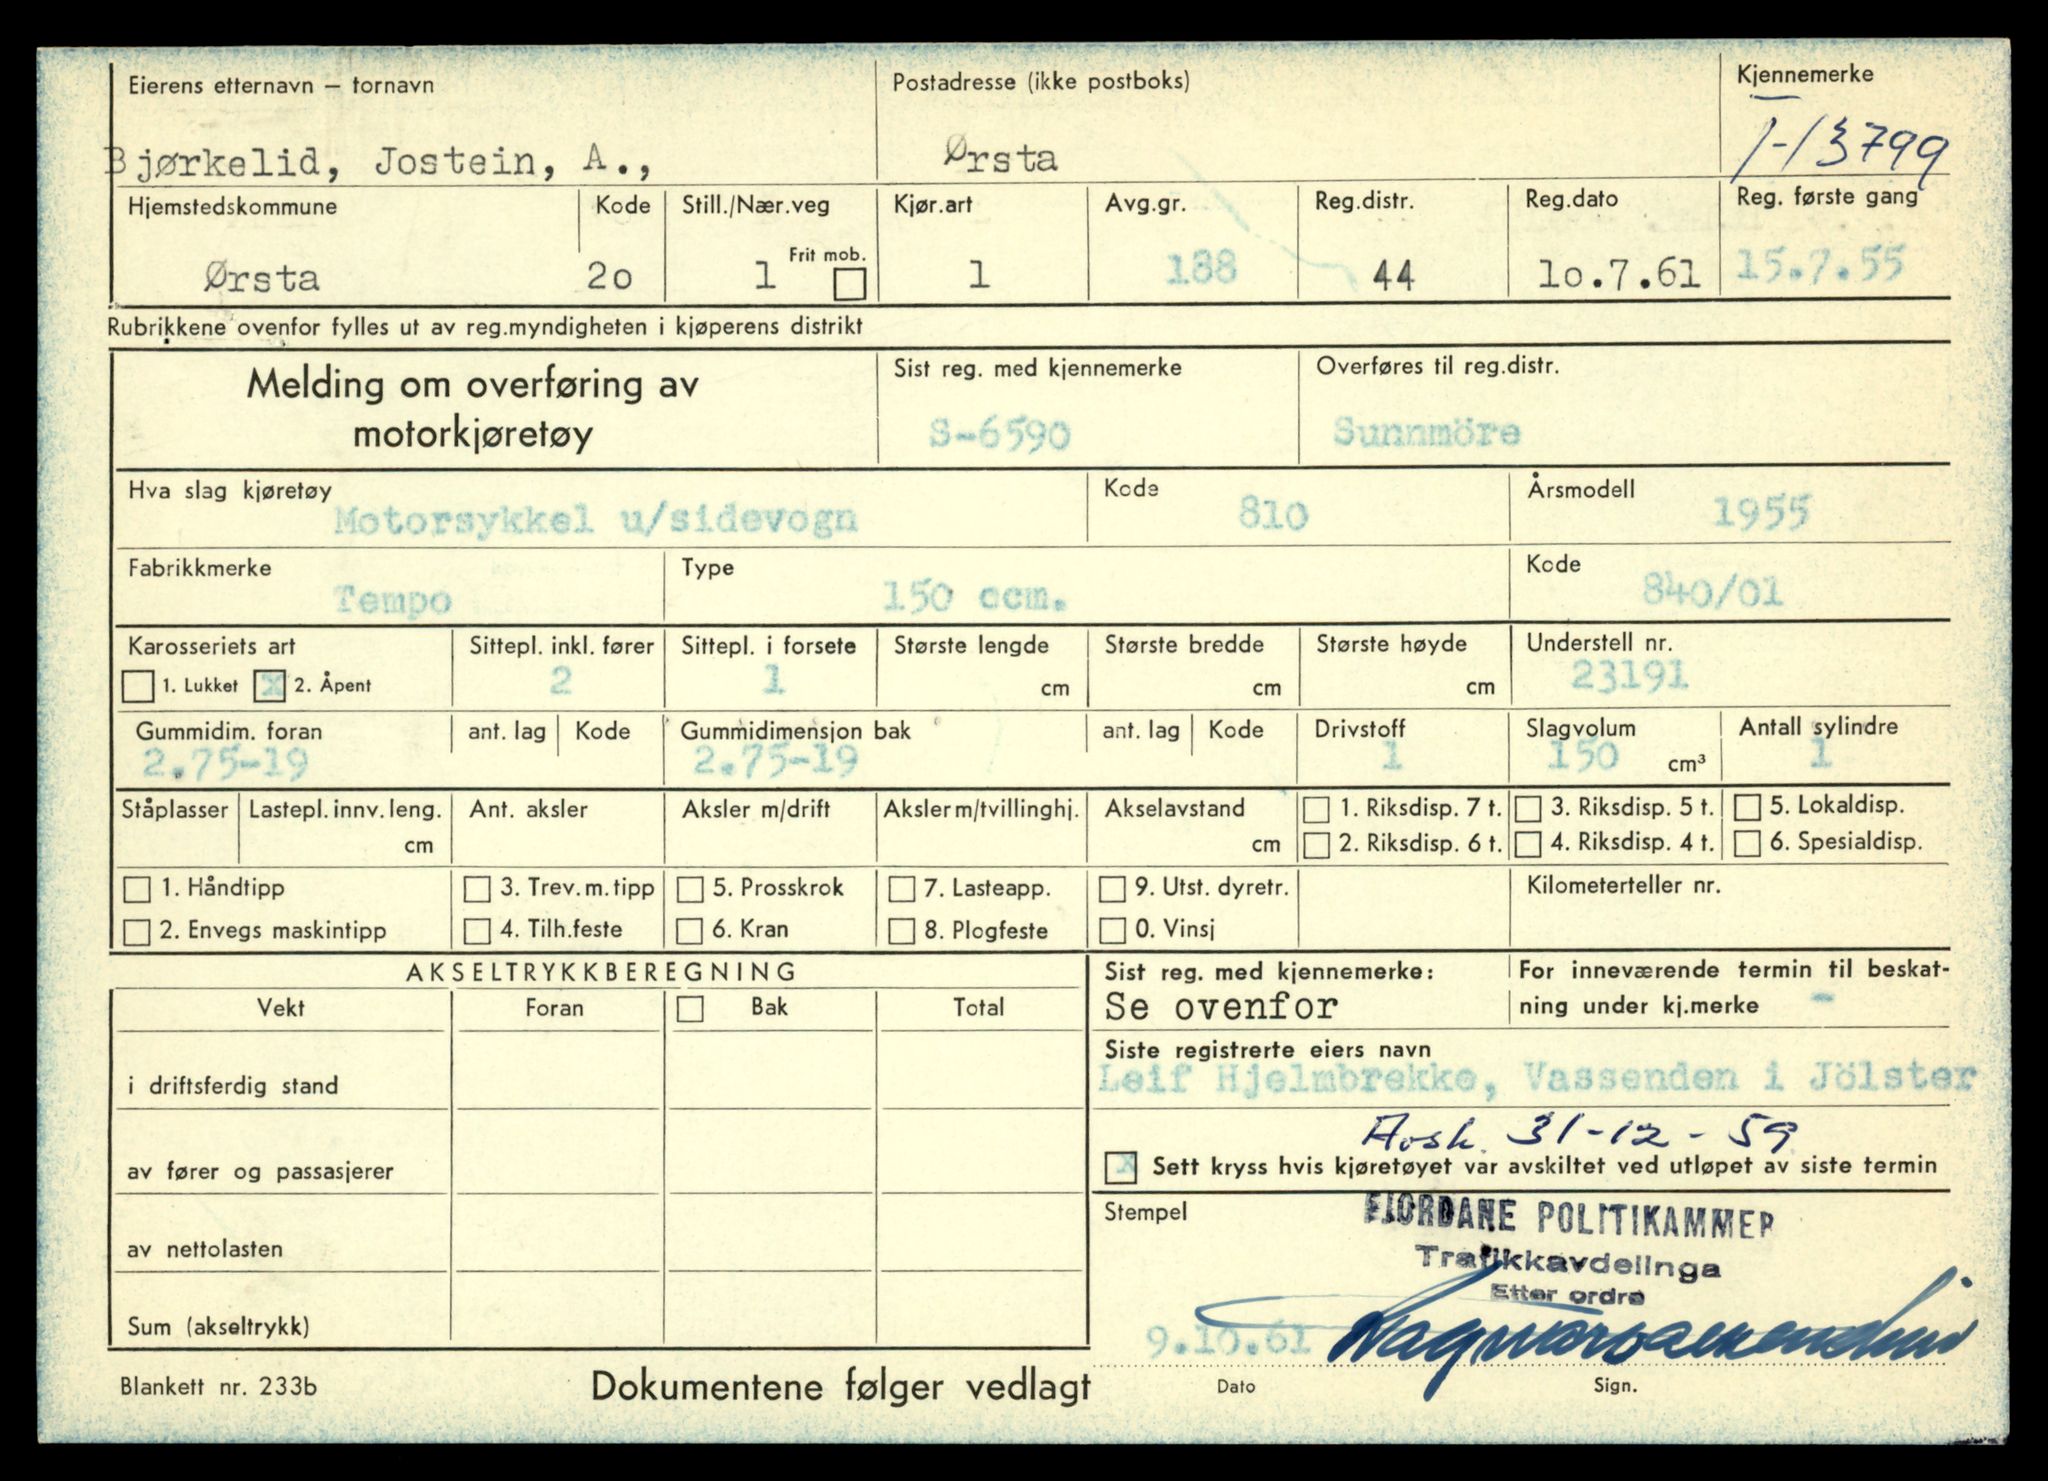 Eierens etternavn – fornavn
Postadresse (ikke postboks)
Kjennemerke
Bjørkelid, Jostein, A.,
Ørsta
T-13799
Hjemstedskommune
Kode
Still./Nær.veg
Kjør.art
Avg.gr.
Reg.distr.
Reg.dato
Reg. første gang
Ørsta
20
1
Frit mob.
1
188
44
10.7.61
15.7.55
Rubrikkene ovenfor fylles ut av reg.myndigheten i kjøperens distrikt
Melding om overføring av
motorkjøretøy
Sist reg. med kjennemerke
Overføres til reg.distr.
S-6590
Sunnmöre
Hva slag kjøretøy
Kode
Årsmodell
Motorsykkel u/sidevogn
810
1955
Fabrikkmerke
Type
Kode
Tempo
150 ccm.
840/01
Karosseriets art
Sittepl. inkl. fører
Sittepl. i forsete
Største lengde
Største bredde
Største høyde
Understell nr.
1. Lukket
x
2. Åpent
2
1
cm
cm
cm
23191
Gummidim. foran
ant. lag
Kode
Gummidimensjon bak
ant. lag
Kode
Drivstoff
Slagvolum
Antall sylindre
2.75-19
2.75-19
1
150
cm³
1
Ståplasser
Lastepl. innv. leng.
Ant. aksler
Aksler m/drift
Aksler m/tvillinghj.
Akselavstand
1. Riksdisp. 7 t.
3. Riksdisp. 5 t.
5. Lokaldisp.
cm
cm
2. Riksdisp. 6 t.
4. Riksdisp. 4 t.
6. Spesialdisp.
1. Håndtipp
3. Trev. m. tipp
5. Prosskrok
7. Lasteapp.
9. Utst. dyretr.
Kilometerteller nr.
2. Envegs maskintipp
4. Tilh.feste
6. Kran
8. Plogfeste
0. Vinsj
AKSELTRYKKBEREGNING
Sist reg. med kjennemerke:
For inneværende termin til beskat-
Vekt
Foran
Bak
Total
Se ovenfor
ning under kj.merke
-
Siste registrerte eiers navn
i driftsferdig stand
Leif Hjelmbrekke, Vassenden i Jölster
Avsk. 31-12-59
av fører og passasjerer
x
Sett kryss hvis kjøretøyet var avskiltet ved utløpet av siste termin
Stempel
FJORDANE POLITIKAMMER
av nettolasten
Trafikkavdelinga
Etter ordre
Sum (akseltrykk)
9.10.61
Blankett nr. 233b
Dokumentene følger vedlagt
Dato
Sign.